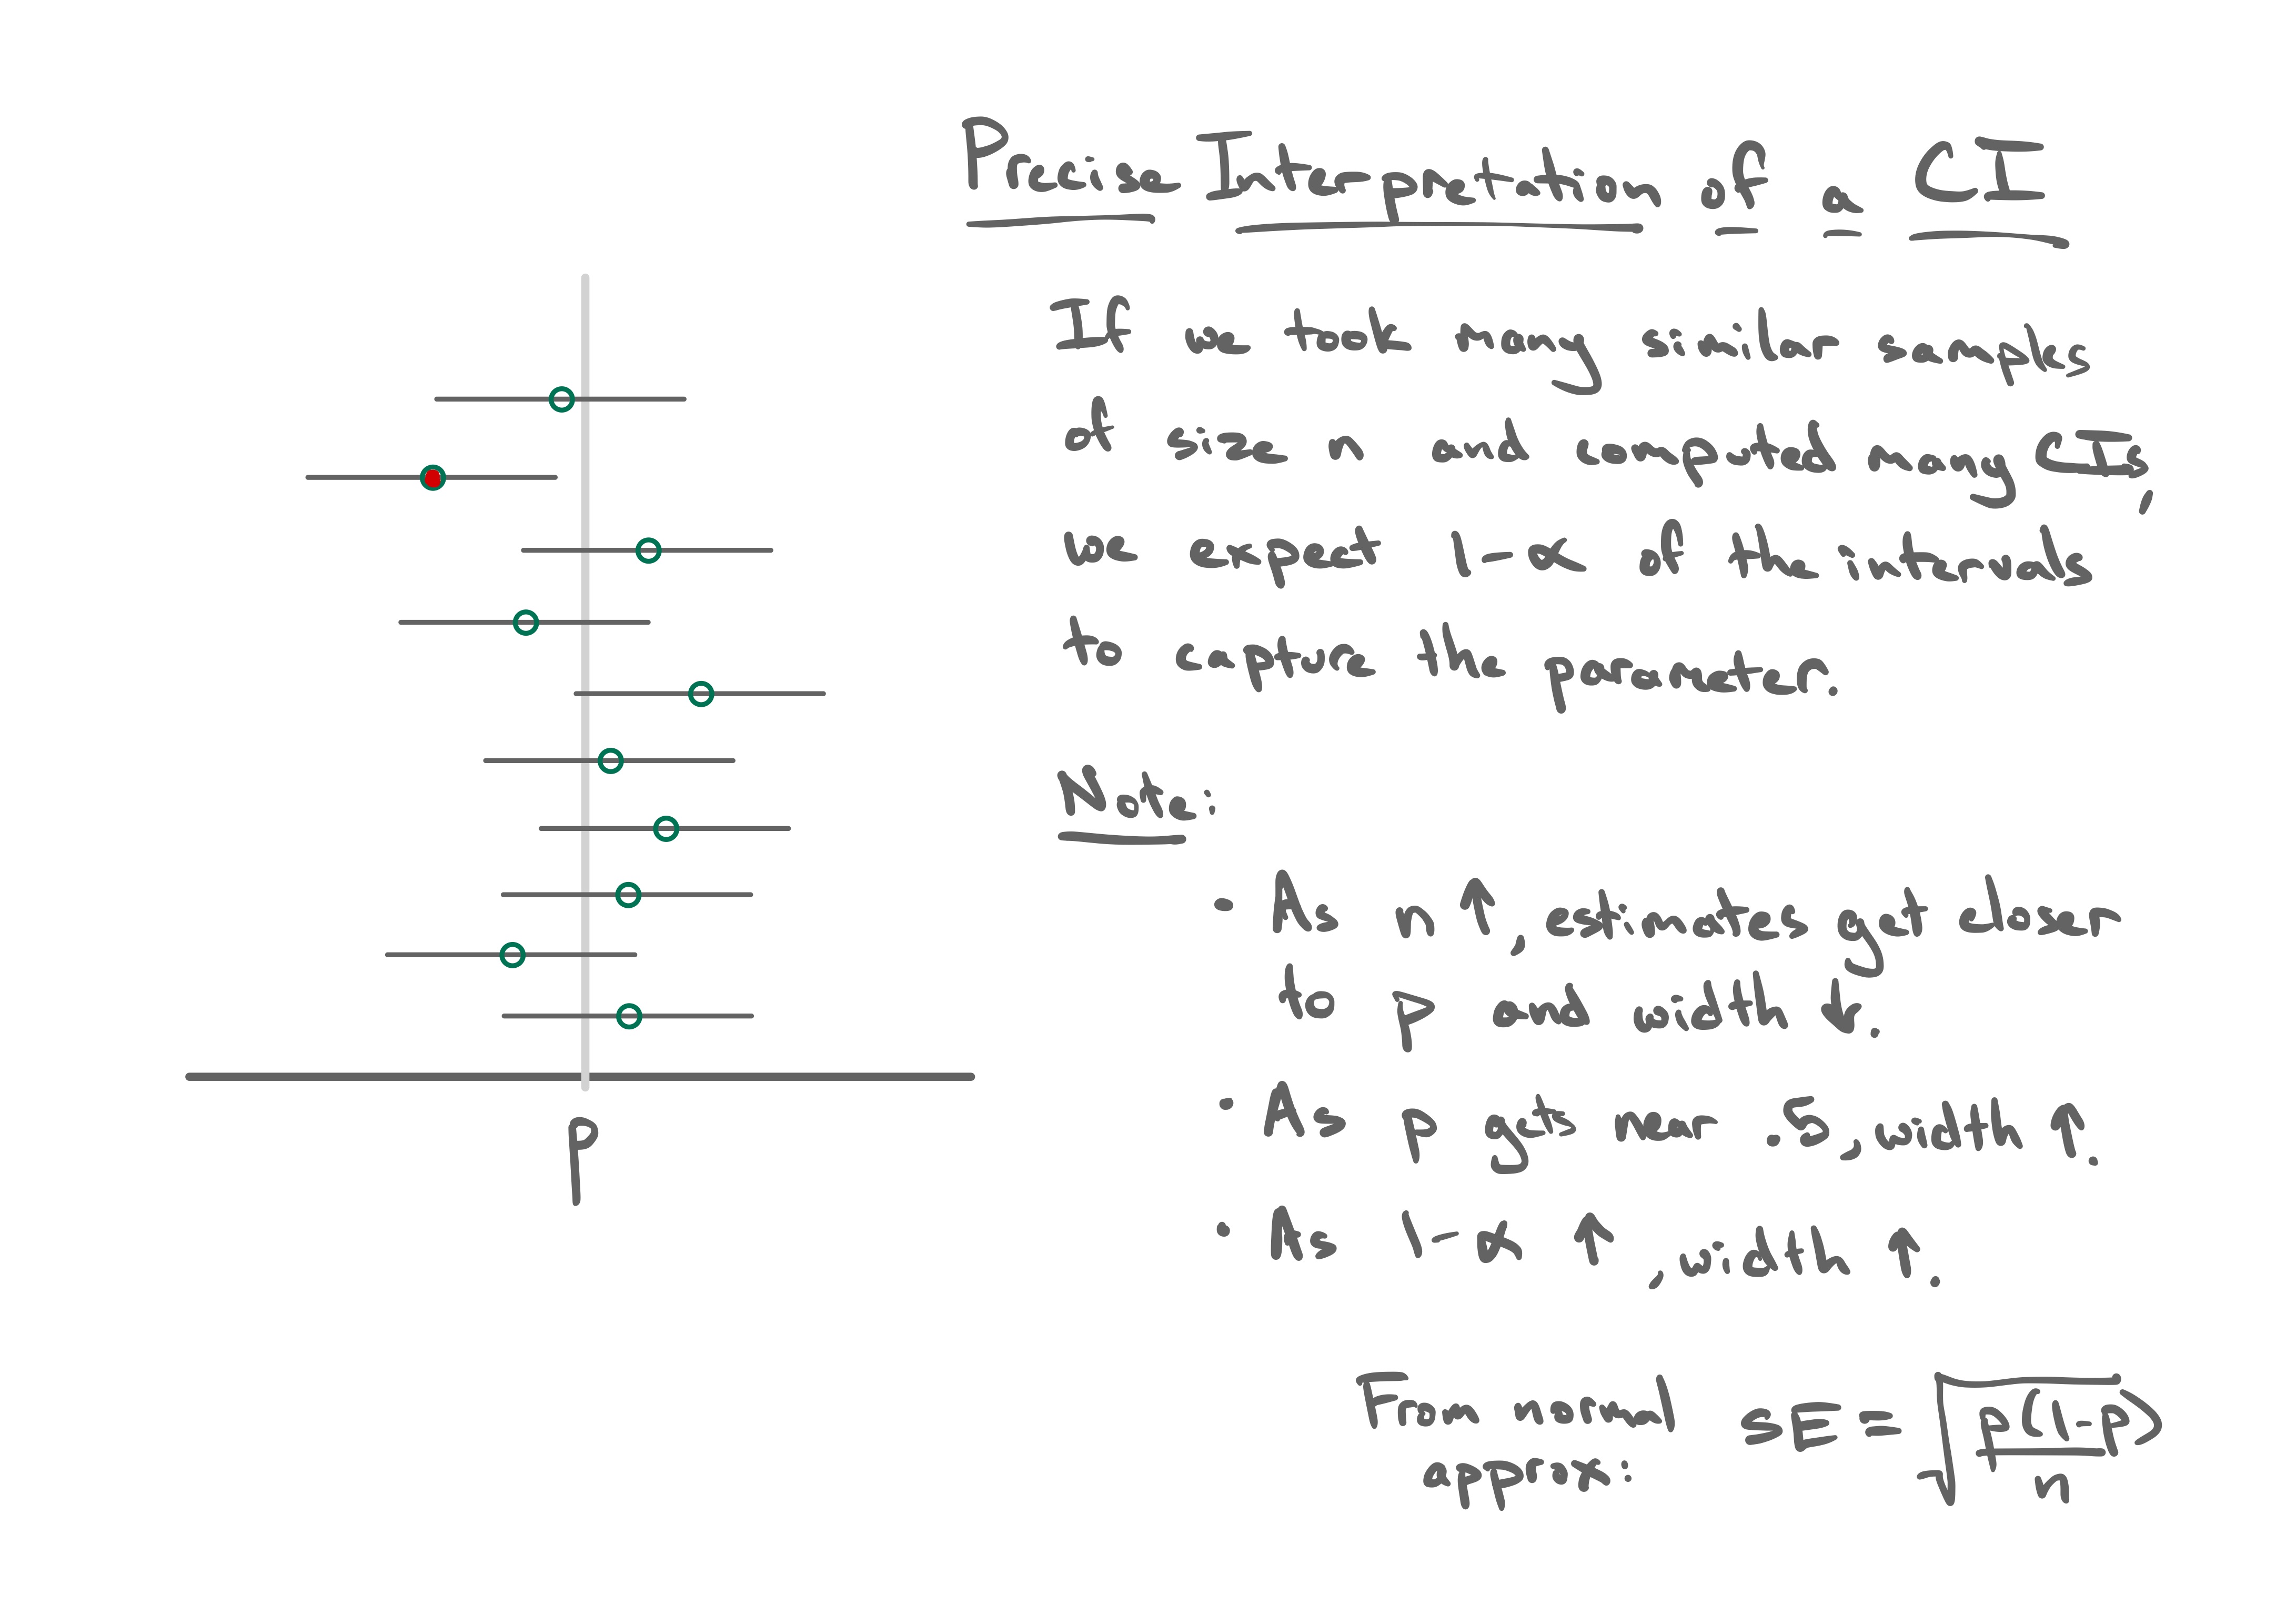 Precise Interpretation of a CI
If we took many similar samples
of size n and computed many CIs,
we expect 1-α of the intervals
to capture the parameter.
Note:
· As n ↑, estimates get closer
to p and width ↓.
· As p gets near .5, width ↑.
· As 1-α ↑, width ↑.
p
From normal
approx:
SE = √(p(1-p)/n)